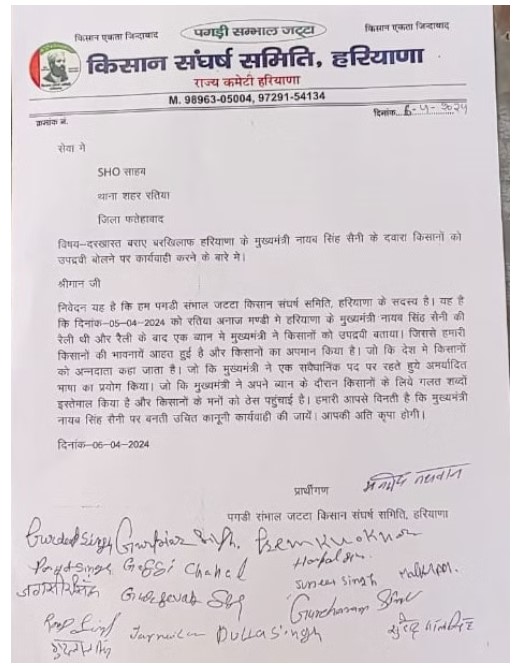 किसान एकता जिन्दाबाद
पगड़ी सम्भाल जट्टा
किसान एकता जिन्दाबाद
किसान संघर्ष समिति, हरियाणा
राज्य कमेटी हरियाणा
M. 98963-05004, 97291-54134
क्रमांक नं.
दिनांक 6-4-2024
सेवा मे
SHO साहब
थाना शहर रतिया
जिला फतेहाबाद
विषय–दरखास्त बराए बरखिलाफ हरियाणा के मुख्यमंत्री नायब सिंह सैनी के दवारा किसानों को
उपद्रवी बोलने पर कार्यवाही करने के बारे मे।
श्रीमान जी
निवेदन यह है कि हम पगडी संभाल जटटा किसान संघर्ष समिति, हरियाणा के सदस्य है। यह है
कि दिनांक-05-04-2024 को रतिया अनाज मण्डी मे हरियाणा के मुख्यमंत्री नायब सिंह सैनी की
रेली थी और रैली के बाद एक ब्यान मे मुख्यमंत्री ने किसानों को उपद्रवी बताया। जिससे हमारी
किसानों की भावनायें आहत हुई है और किसानों का अपमान किया है। जो कि देश मे किसानों
को अन्नदाता कहा जाता है। जो कि मुख्यमंत्री ने एक सवैधानिक पद पर रहते हुये अमर्यादित
भाषा का प्रयोग किया। जो कि मुख्यमंत्री ने अपने ब्यान के दौरान किसानों के लिये गलत शब्दों
इस्तेमाल किया है और किसानों के मनों को ठेस पहुंचाई है। हमारी आपसे विनती है कि मुख्यमंत्री
नायब सिंह सैनी पर बनती उचित कानूनी कार्यवाही की जायें। आपकी अति कृपा होगी।
दिनांक-06-04-2024
प्रार्थीगण
पगडी संभाल जटटा किसान संघर्ष समिति, हरियाणा
Gurdeep Singh
Prem
Goggi Chahal
Singh
Gurcharan Singh
Dulla Singh